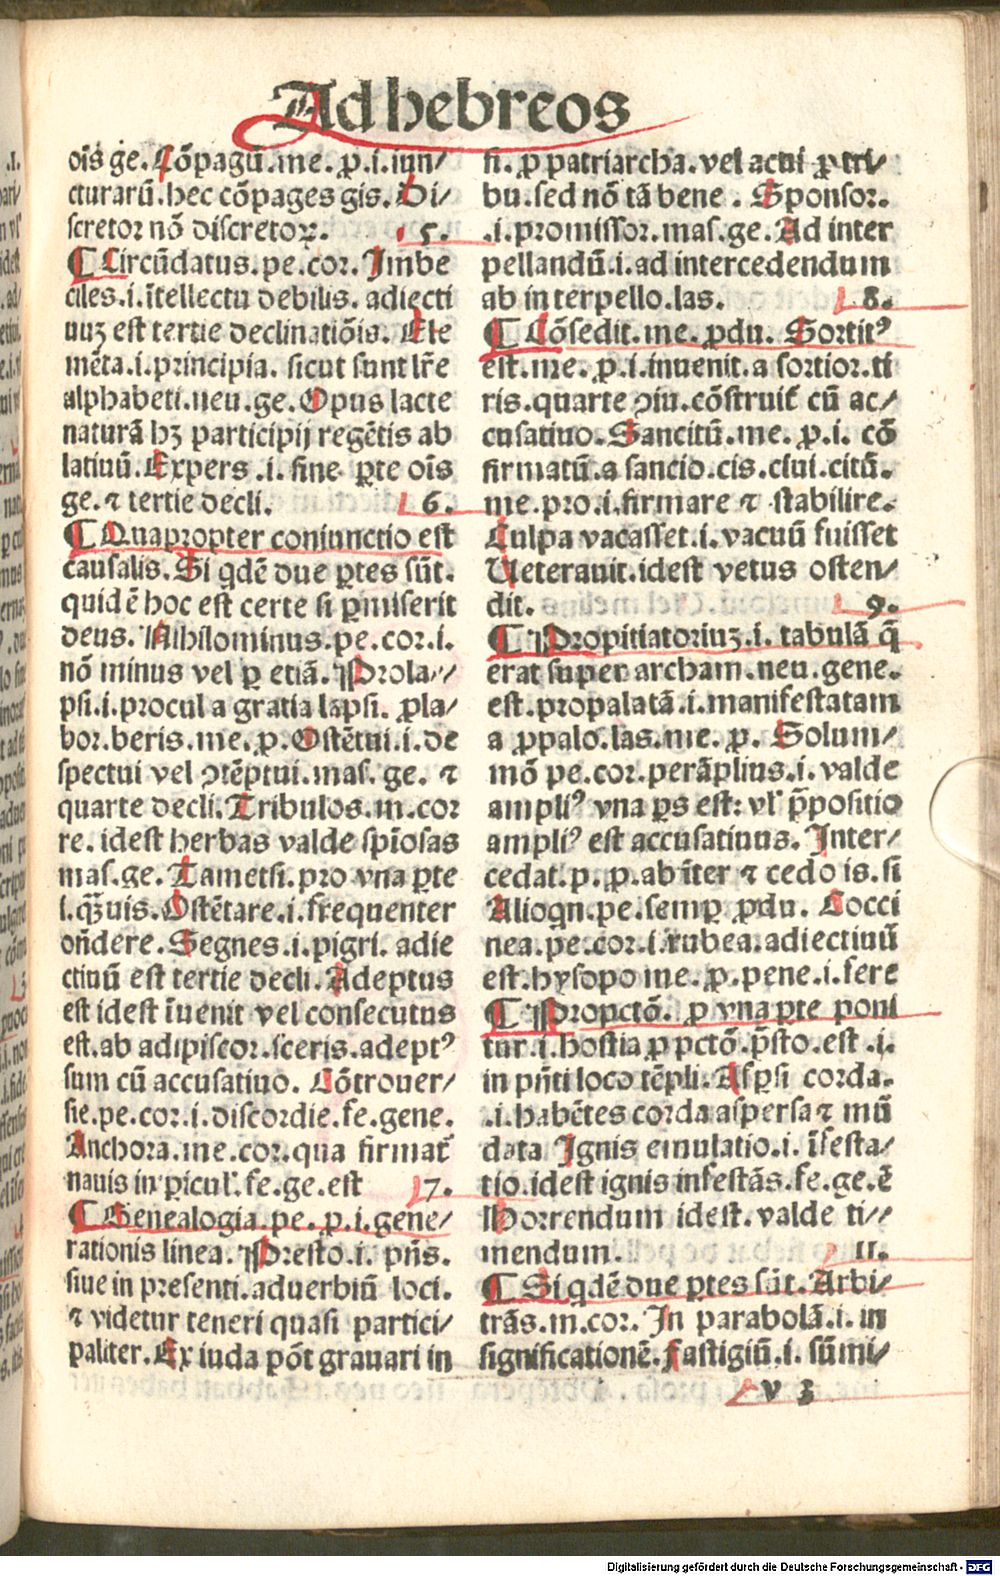 Ad hebreos
oīs ge. Cōpagū.me. ꝓ.i.iun/
cturarū.hec cōpages gis. Di/
scretor nō discretoꝝ. 5.
¶ Circūdatus.pe.cor. Imbe
ciles.i.ītellectu debilis. adiecti
uuꝫ est tertie declinatiōis. Ele
mēta.i.principia. sicut sunt lr̄e
alphabeti.neu.ge. Opus lacte
naturā hꝫ participij regētis ab
latiuū. Expers .i. sine ꝑte oīs
ge. ⁊ tertie decli. 6.
¶ Quapropter coniunctio est
causalis. Si qdē due ꝑtes sūt.
quidē hoc est certe si ꝑmiserit
deus. Nihilominus.pe.cor.i.
nō minus vel ꝑ etiā. Prola//
psi.i.procul a gratia lapsi. ꝓla/
bor.beris.me.ꝓ. Ostētui.i.de
spectui vel ↄtēptui.mas.ge. ⁊
quarte decli. Tribulos.m.cor
re. idest herbas valde spīosas
mas.ge. Tametsi.pro vna ꝑte
i.qꝫuis. Ostētare.i.frequenter
oñdere. Segnes.i.pigri. adie
ctiuū est tertie decli. Adeptus
est idest īuenit vel consecutus
est.ab adipiscor.sceris.adeptꝰ
sum cū accusatiuo. Cōtrouer/
sie.pe.cor.i.discordie.fe.gene.
Anchora.me.cor.qua firmat̄
nauis in ꝑicul'.fe.ge.est 7.
¶ Genealogia.pe.ꝓ.i.gene/
rationis linea. Presto.i. pn̄s.
siue in presenti.aduerbiū loci.
⁊ videtur teneri quasi partici/
paliter. Ex iuda pōt grauari in
fi. ꝓ patriarcha.vel acui ꝓ tri/
bu.sed nō tā bene . Sponsor.
.i.promissor.mas.ge. Ad inter
pellandū.i.ad intercedendum
ab interpello.las. 8.
¶ Cōsedit.me. ꝓdu. Sortitꝰ
est.me.ꝓ.i.inuenit.a sortior.ti
ris.quarte ↄiu.cōstruit̄ cū ac/
cusatiuo. Sancitū.me. ꝓ.i. cō
firmatū.a sancio.cis.ciui.citū.
me.pro.i.firmare ⁊ stabilire.
Culpa vacasset.i.vacuū fuisset
Ueterauit.idest vetus osten/
dit. 9.
¶ Propitiatoriuꝫ.i. tabulā q̄
erat super archam.neu.gene.
est.propalatā.i.manifestatam
a ꝓpalo.las.me. ꝓ. Solum/
mō pe.cor.perāplius.i.valde
ampliꝰ vna ꝑs est: vl' p̄positio
ampliꝰ est accusatiuus. Inter/
cedat.p. ꝓ.ab īter ⁊ cedo is.si
Alioqn.pe.semꝑ ꝓdu. Cocci
nea.pe.cor.i.rubea.adiectiuū
est.hysopo me. ꝓ.pene.i.fere
¶ Propctō. ꝓ vna ꝑte poni
tur.i.hostia ꝓ pctō.p̄sto.est .i.
in pn̄ti loco tēpli. Asꝑsi corda.
.i.habētes corda aspersa ⁊ mū
data. Ignis emulatio.i. īfesta/
tio.idest ignis infestās.fe.ge.ē
Horrendum idest. valde ti//
mendum. 11.
¶ Si qdē due ꝑtes sūt. Arbi/
trās.m.cor. In parabolā.i. in
significationē. Fastigiū.i. sūmi/
v 3
Digitalisierung gefördert durch die Deutsche Forschungsgemeinschaft - DFG